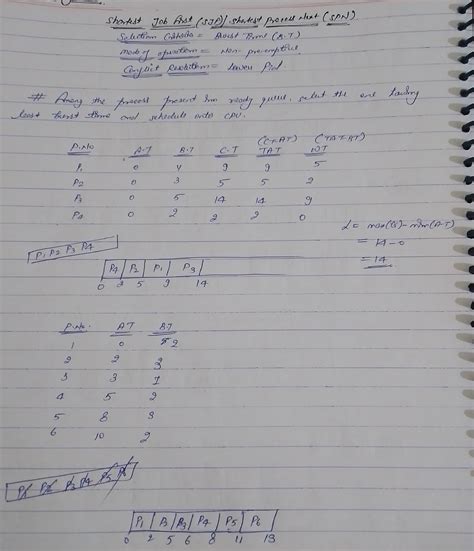 Shortest Job First (SJF)/ Shortest Process Next (SPN)
Selection Criteria = Burst Time (B.T)
Mode of operation = Non-preemptive
Conflict Resolution = Lower Pid.
# Among the process present in ready queue, select the one having
least burst time and schedule onto CPU.
(CT-AT) (TAT-BT)
P.No A.T B.T C.T TAT WT
P1 0 4 9 9 5
P2 0 3 5 5 2
P3 0 5 14 14 9
P4 0 2 2 2 0
L = max(CT)-min(AT)
= 14-0
= 14
P1 P2 P3 P4
P4 P2 P1 P3
0 2 5 9 14
P.No. AT BT
1 0 2
2 2 3
3 3 1
4 5 2
5 8 3
6 10 2
P1 P2 P3 P4 P5 P6
P1 P2 P3 P4 P5 P6
0 2 5 6 8 11 13